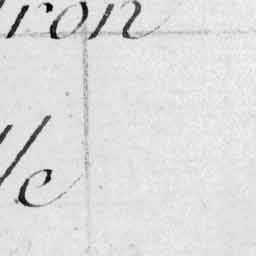 tron
lle